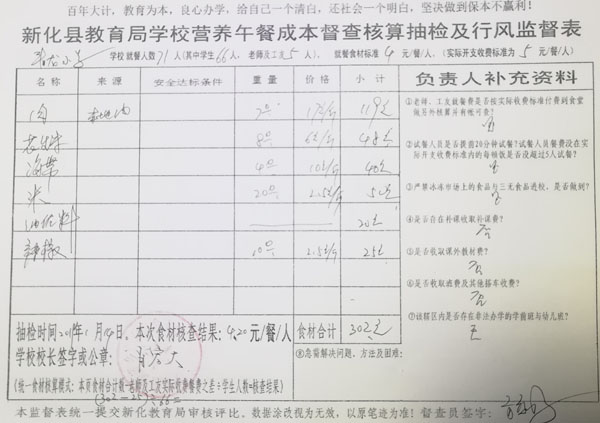 百年大计，教育为本，良心办学，给自己一个清白，还社会一个明白，坚决做到保本不赢利！
新化县教育局学校营养午餐成本督查核算抽检及行风监督表
学校就餐人数71人(其中学生66人，老师及工友5人)，就餐食材标准4元/餐/人，(实际开支收费标准为5元/餐/人)
名称 来源 安全达标条件 重量 价格 小计 负责人补充资料
肉 7斤 17元/斤 119元
8斤 6元/斤 48元
海带 4斤 10元/斤 40元
米 20斤 2.5元/斤 50元
油佐料 20元
辣椒 10斤 2.5元/斤 25元
①老师、工友就餐费是否按实际收费标准付费到食堂
做另外核算并有账可查?
②试餐人员是否提前20分钟试餐?试餐人员餐费没在实
际开支收费标准内的每顿饭是否没超过5人试餐?
③严禁冰冻市场上的食品与三无食品进校，是否做到?
是
④是否存在补课收取补课费?
否
⑤是否收取课外教材费?
否
⑥是否收取酒费及其他搭车收费?
否
⑦该辖区内是否存在非法办学的学前班与幼儿班?
无
抽检时间2019年1月14日，本次食材核查结果：4.20元/餐/人 食材合计 302元
学校校长签字或公章：
⑧急需解决问题、方法及困难：
(统一食材核算模式：本页食材合计数-老师及工友实际收费餐费之差÷学生人数=核查结果)
(302-25)÷66=
本监督表统一提交新化教育局审核评比。数据涂改视为无效，以原笔迹为准！督查员签字：